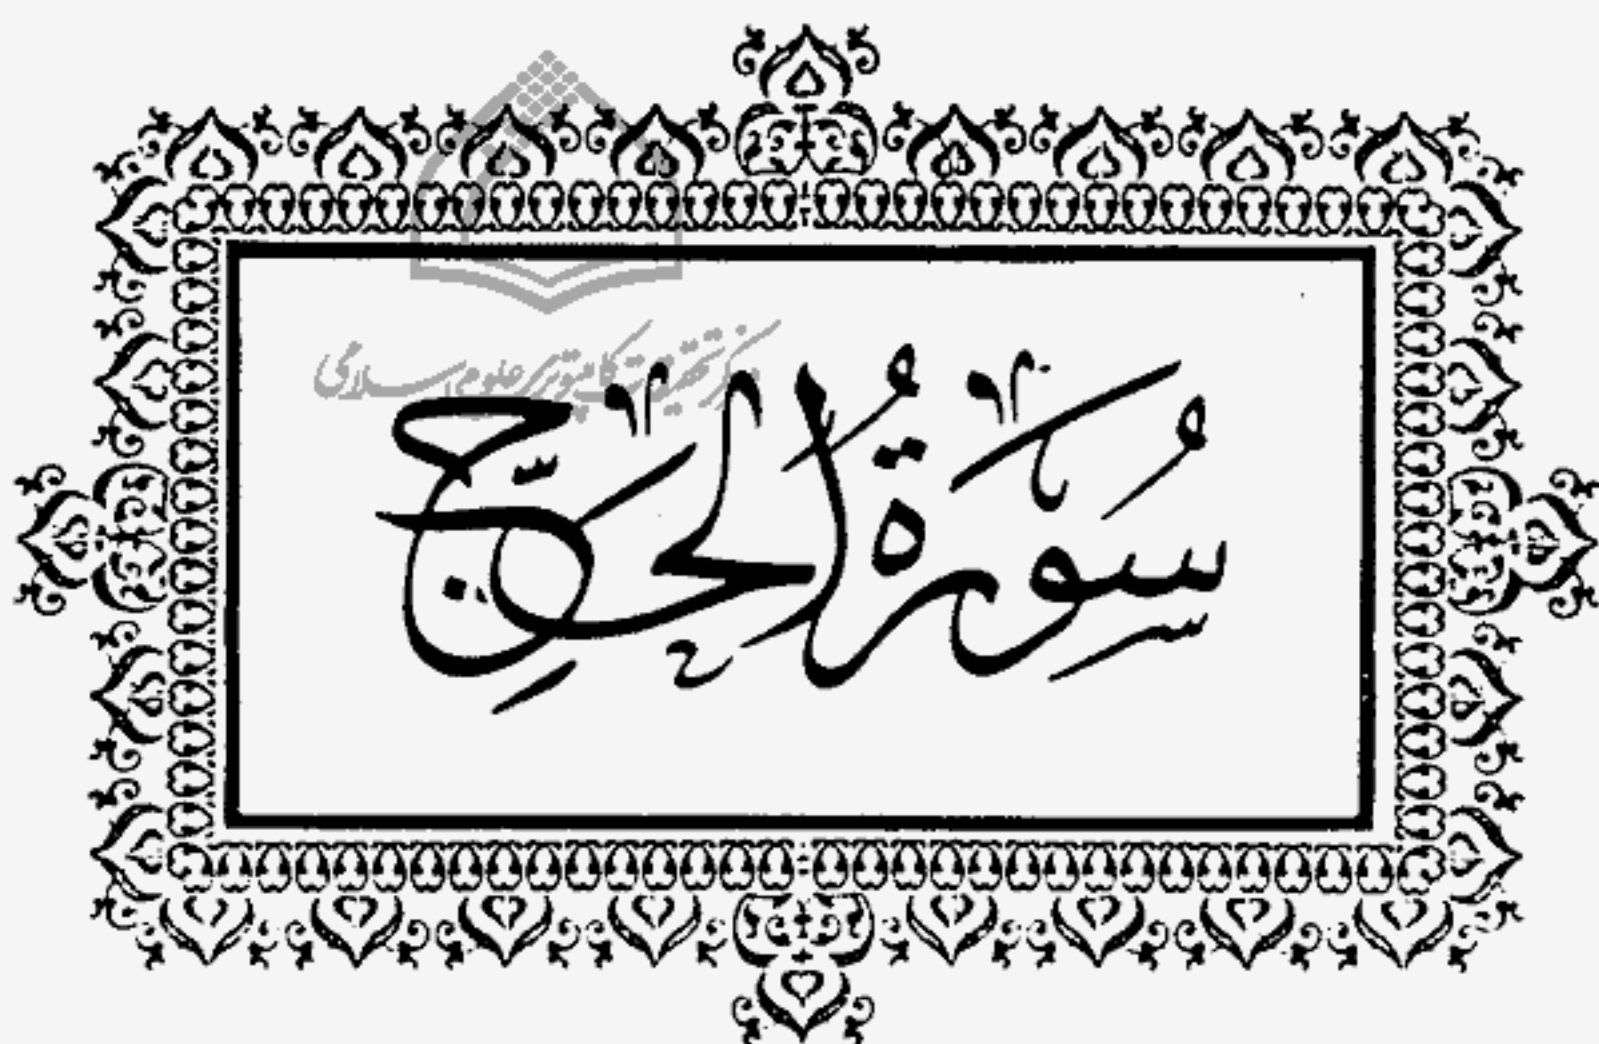 مرکز تحقیقات کامپیوتری علوم اسلامی
سُورَةُ الحَجِّ